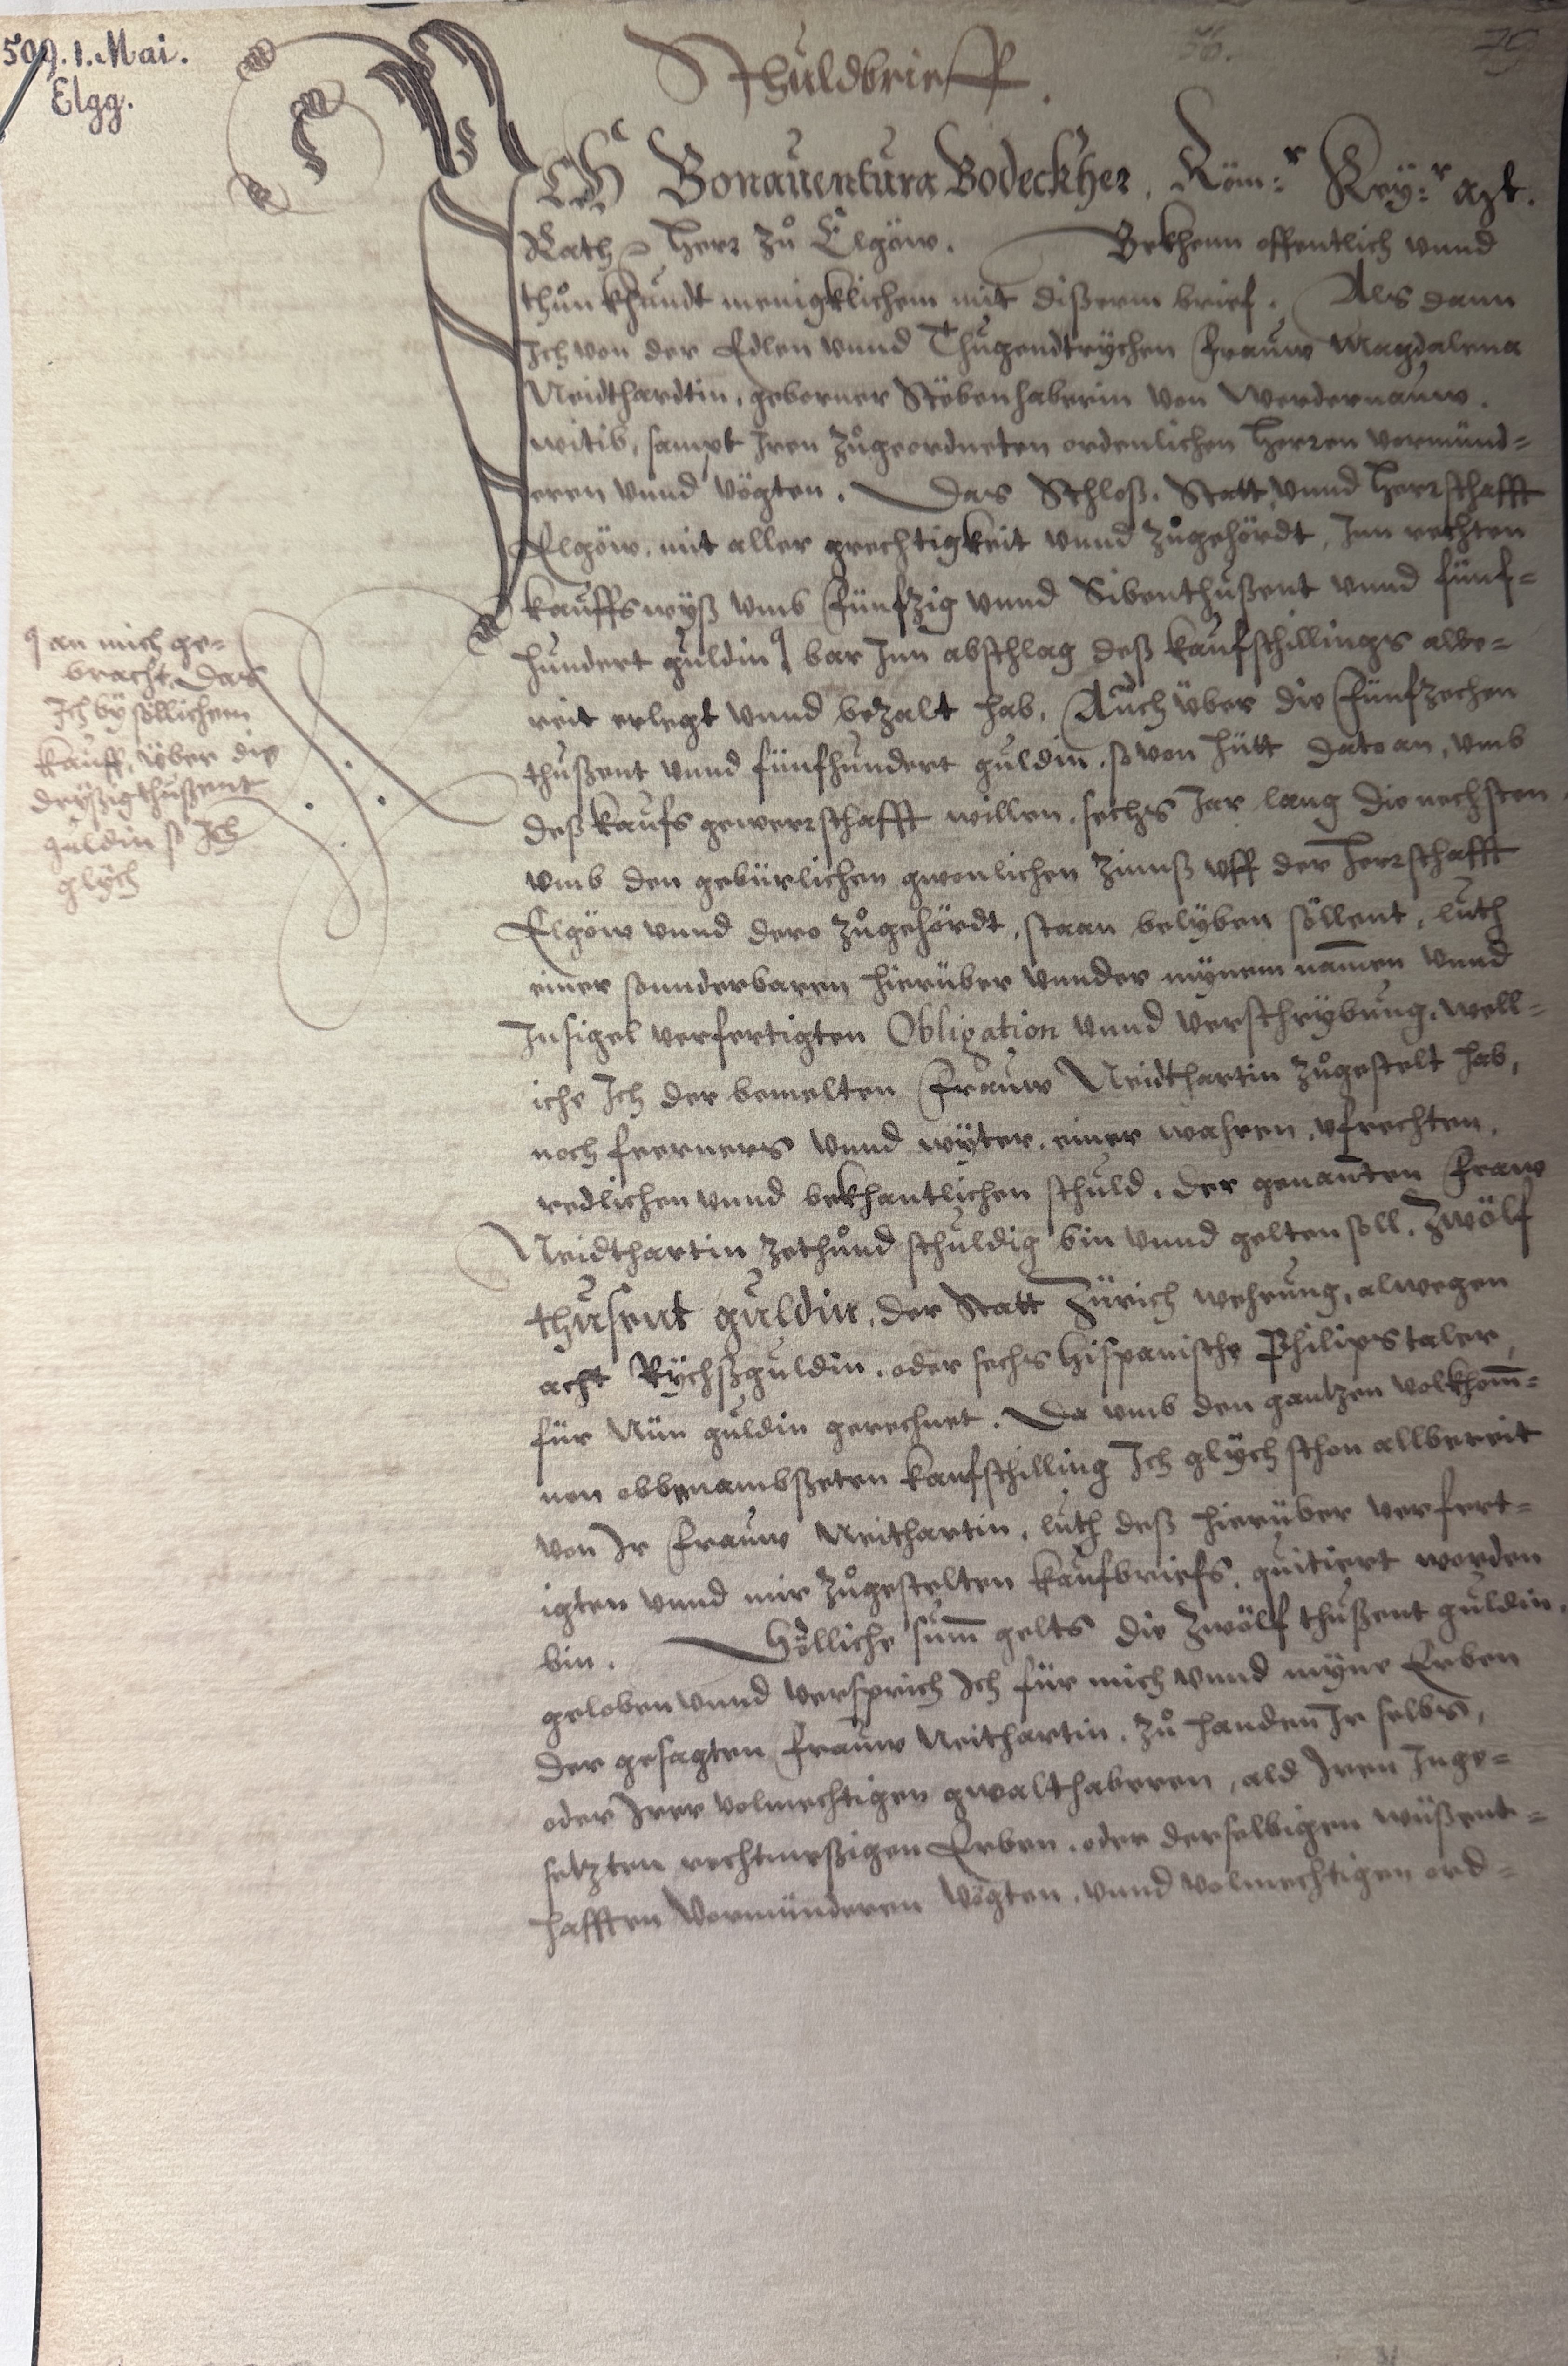 509. 1. Mai.
Elgg.
56.
79
Schuldbrieff.
ICH Bonauentura Bodeckher, Röm:r Key:r Mt.
Rath, Herr zů Elgöw. Bekhenn offentlich vnnd
thůn khundt menigklichem mit disserm brief. Als dann
Ich von der Edlen vnnd Thugendtrychen Frauw Magdalena
Neidthardtin, geborner Stöbenhaberin von Werdernauw.
witib, sampt Iren zůgeordneten ordenlichen Herren vormünd-
eren vnnd vögten. Das Schloß, Statt vnnd Herrschafft
Elgöw, mit aller grechtigkeit vnnd zůgehördt, Inn rechten
kauffswyß vmb Fünfzig vnnd Sibenthußent vnnd fünf-
hundert guldin bar Inn abschlag deß kaufschillings albe-
reit erlegt vnnd bezalt hab, Auch über die Fünfzechen
thußent vnnd fünfhundert guldin, so von hütt dato an, vmb
deß kaufs gewerrschafft willen, sechs Jar lang die nechsten
vmb den gebürlichen gwonlichen Zinnß vff der Herrschafft
Elgöw vnnd dero zůgehördt, staan belyben söllent, luth
einer sonnderbaren hierüber vnnder mynem nammen vnnd
Insigel verfertigten Obligation vnnd verschrybung, well-
iche Ich der bemelten Frauw Neidthartin zůgestelt hab,
noch feerners vnnd wyter, einer wahren, vfrechten,
redlichen vnnd bekhantlichen schuld, der genanten Fraw
Neidthartin zethůnd schuldig bin vnnd gelten soll, Zwölf
thusent guldin, der Statt Zürich wehrung, alwegen
acht Rychßguldin, oder sechs hispanische Philipstaler,
für Nün guldin gerechnet. Da vmb den gantzen volkhom̄-
nen obbenambßeten kaufschilling Ich glych schon allbereit
von Ir Frauw Neithartin, luth deß hierüber verfert-
igten vnnd mir zůgestelten kaufbriefs, quitiert worden
bin. Söliche sum̄ gelts die Zwölf thußent guldin,
geloben vnnd versprich Ich für mich vnnd myne Erben
der gesagten frauw Neithartin, zů handen Ir selbs,
oder Irer volmechtigen gwalthaberen, ald Iren Inge-
setzten rechtmeßigen Erben, oder derselbigen wüßent-
hafften Vormünderen Vögten, vnnd volmechtigen ord-
an mich ge-
bracht, Das
Ich by söllichem
kauff, über die
dryßig thußent
guldin so Ich
glych